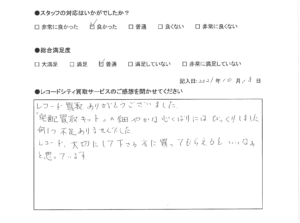 ●スタッフの対応はいかがでしたか？
□ 非常に良かった ☑ 良かった □ 普通 □ 良くない □ 非常に良くない
●総合満足度
□ 大満足 □ 満足 ☑ 普通 □ 満足していない □ 非常に満足していない
記入日:2021年10月 日
●レコードシティ買取サービスのご感想を聞かせてください
レコード買取ありがとうございました。
"宅配買取キット"の細やかな心くばりにはびっくりしました
何1つ不足ありませんでした
レコード、大切にして下さる方に買ってもらえるといいなぁ
と思っています